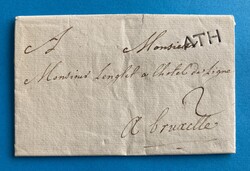 A Monsieur
ATH
Monsieur Lenglet a Lhotel de Ligne
2
A Bruxelle